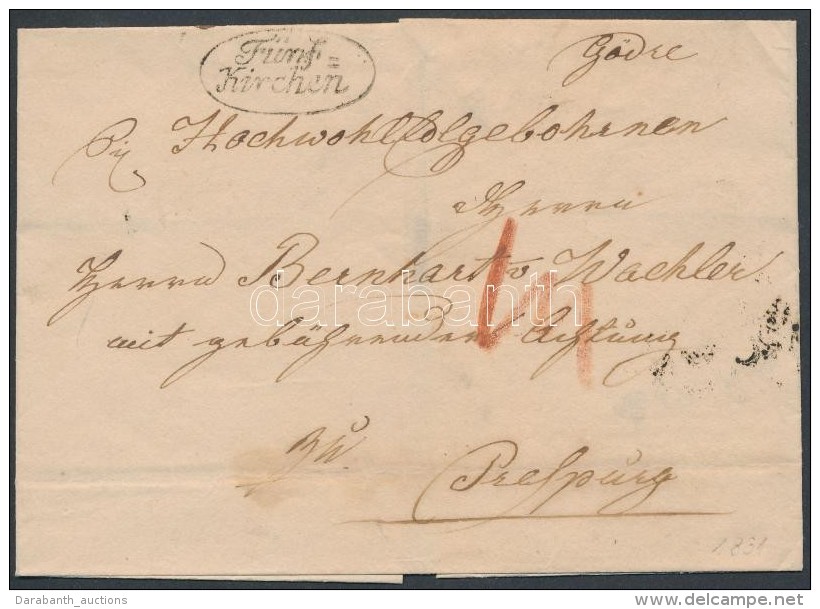 Fünf=
Kirchen
Gödre
Hochwohl Edlgebohrnen
Herrn
Herrn Bernhart v Wachler
darabanth
mit gebührender Achtung
zu
Prespurg
1831
Darabanth_auctions
http://www.delcampe.net